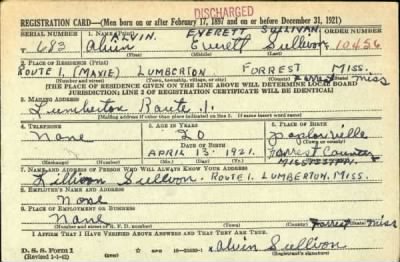 DISCHARGED
REGISTRATION CARD—(Men born on or after February 17, 1897 and on or before December 31, 1921)
SERIAL NUMBER
1. NAME (Print)
ORDER NUMBER
ALVIN. EVERETT SULLIVAN.
T 683 Alvin Everett Sullivon 10456
2. PLACE OF RESIDENCE (Print)
ROUTE 1. (MAXIE) LUMBERTON FORREST MISS.
Forrest miss
(Number and street) (Town, township, village, or city) (County) (State)
[THE PLACE OF RESIDENCE GIVEN ON THE LINE ABOVE WILL DETERMINE LOCAL BOARD
JURISDICTION; LINE 2 OF REGISTRATION CERTIFICATE WILL BE IDENTICAL]
3. MAILING ADDRESS
Lumberton Route 1.
(Mailing address if other than place indicated on line 2. If same insert word same)
4. TELEPHONE
5. AGE IN YEARS
6. PLACE OF BIRTH
None
20
DATE OF BIRTH
(Town or county)
APRIL 13. 1921.
Forrest County
(Exchange) (Number)
(Mo.) (Day) (Yr.)
(State or country)
7. NAME AND ADDRESS OF PERSON WHO WILL ALWAYS KNOW YOUR ADDRESS
Sullivon. ROUTE 1. LUMBERTON, MISS.
8. EMPLOYER'S NAME AND ADDRESS
None
9. PLACE OF EMPLOYMENT OR BUSINESS
None Forrest miss
(Number and street or R. F. D. number) (Town) (County) (State)
I AFFIRM THAT I HAVE VERIFIED ABOVE ANSWERS AND THAT THEY ARE TRUE.
D. S. S. Form 1
(Revised 1-1-42)
(over)
Alvin Sullivon
(Registrant's signature)